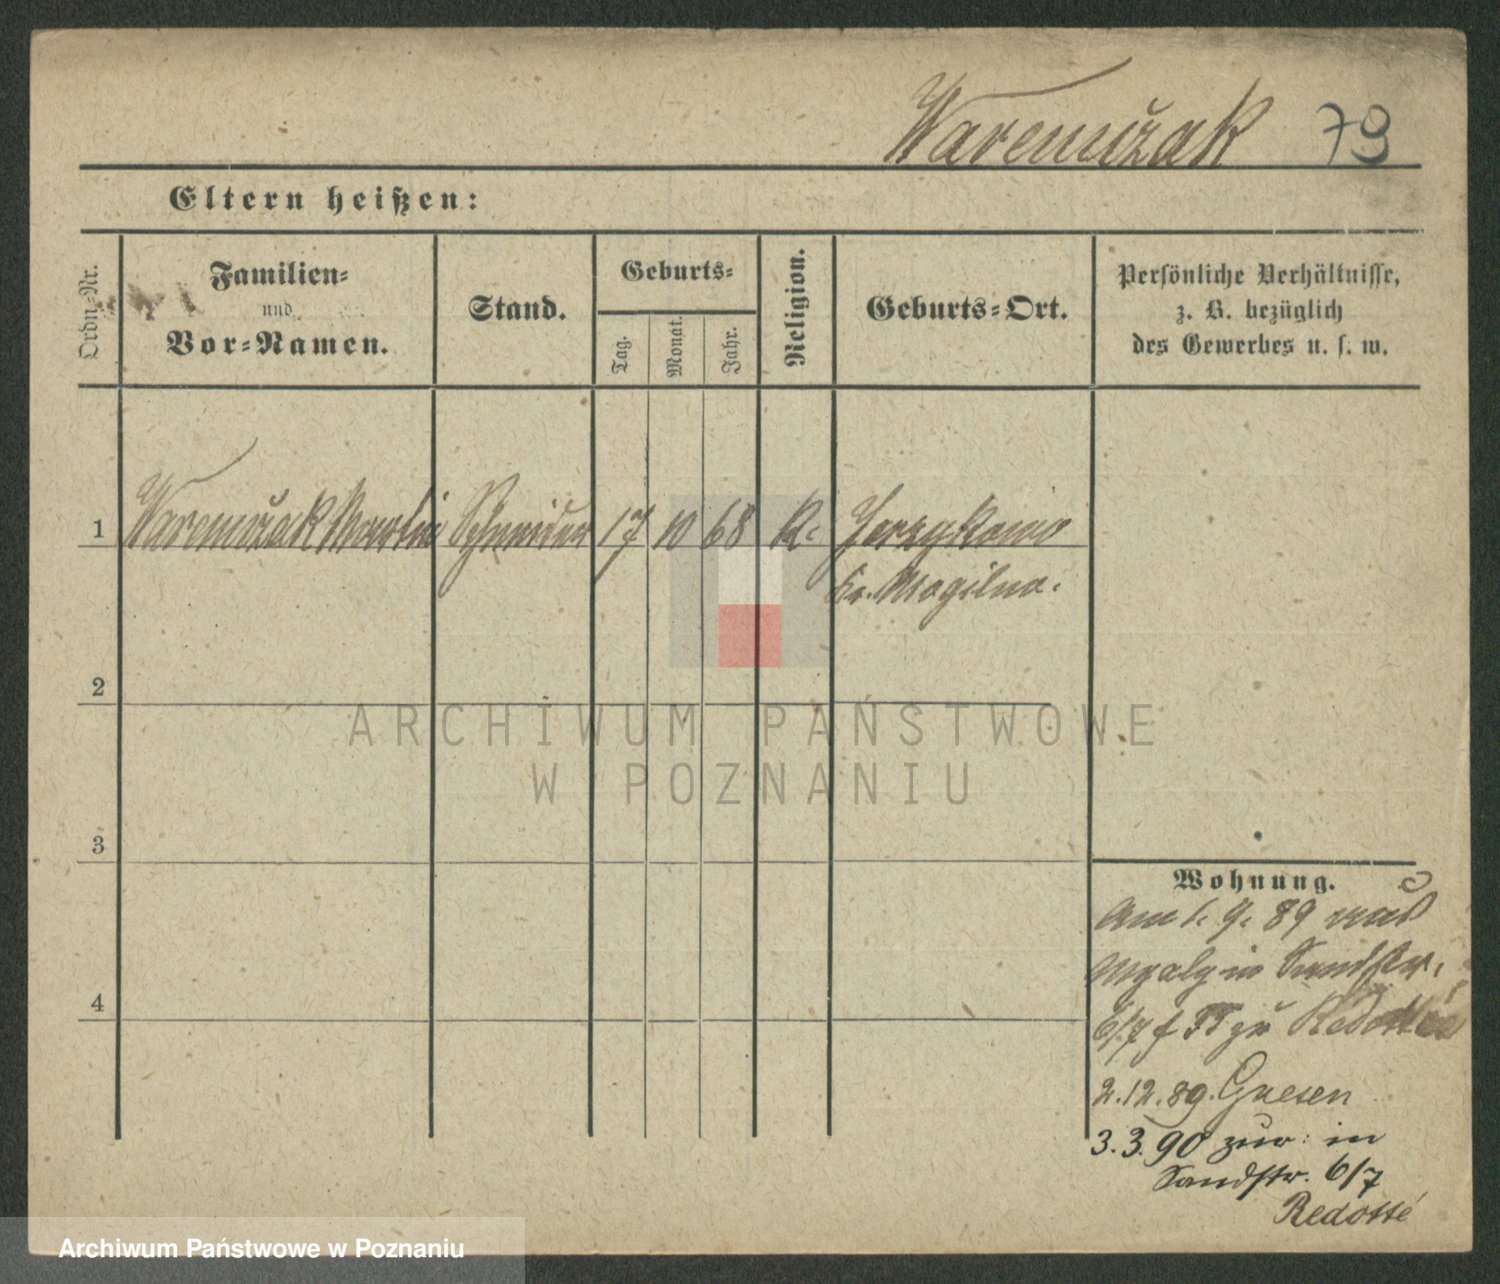 Waremużak 79
Eltern heißen:
Ordn.-Nr.
Familien-
und
Vor-Namen.
Stand.
Geburts-
Tag.
Monat.
Jahr.
Religion.
Geburts-Ort.
Persönliche Verhältnisse,
z. B. bezüglich
des Gewerbes u. s. w.
1 Waremużak Martin Schneider 17 10 68 K. Jerzykowo
Kr. Mogilno.
2
3
4
ARCHIWUM PAŃSTWOWE
W POZNANIU
Wohnung.
Am 1. 9. 89 aus
in Sandstr.
6/7 zu Redotté
2.12.89. Gnesen
3.3.90 zur: in
Sandstr. 6/7
Redotté
Archiwum Państwowe w Poznaniu